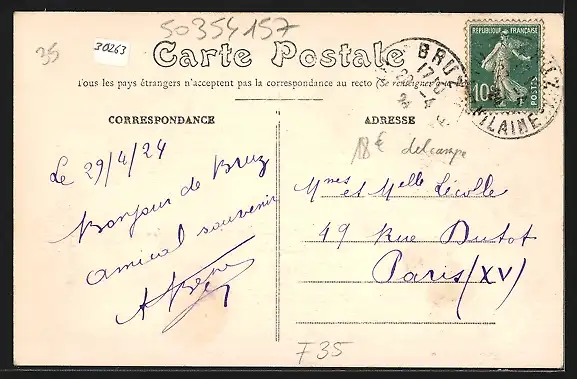 50354157
35
30263
Carte Postale
Tous les pays étrangers n'acceptent pas la correspondance au recto (Se renseigner à la
CORRESPONDANCE
ADRESSE
RÉPUBLIQUE FRANÇAISE
10
POSTES
BRUZ
17
29-4
VILAINE
18€ delcampe
Le 29/4/24
Bonjour de Bruz
amical souvenir
Mmes et Melle Lécolle
49 Rue Dutot
Paris (XV)
F35